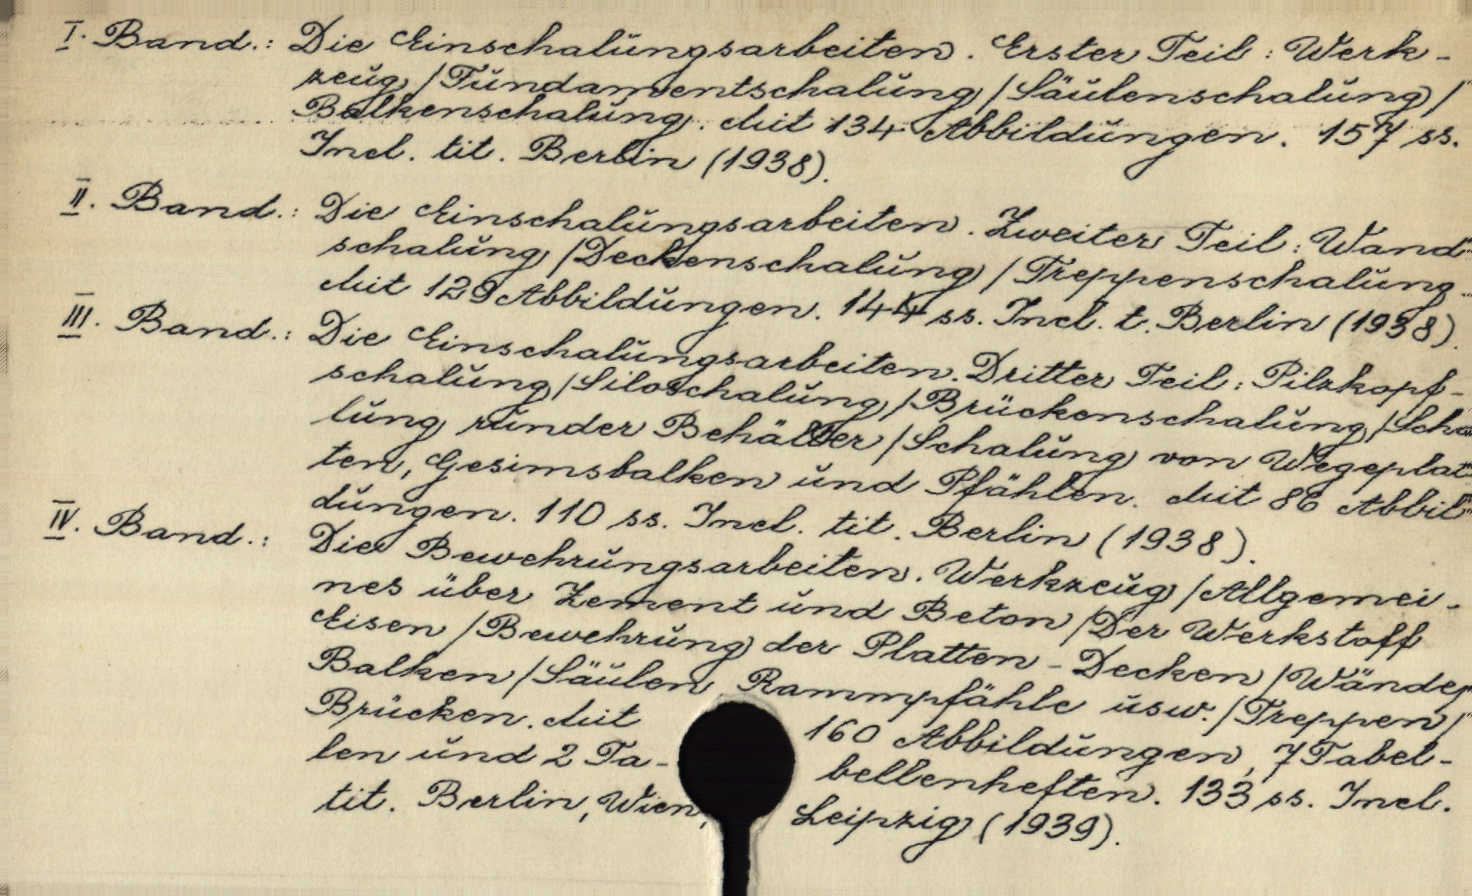 I. Band.: Die Einschalŭngsarbeiten. Erster Teil: Werk-
zeŭg/Fŭndamentschalŭng/Säŭlenschalŭng/
Balkenschalŭng. Mit 134 Abbildŭngen. 157 ss.
Incl. tit. Berlin (1938).
II. Band.: Die Einschalŭngsarbeiten. Zweiter Teil: Wand-
schalŭng/Deckenschalŭng/Treppenschalŭng.
Mit 129 Abbildŭngen. 144 ss. Incl. t. Berlin (1938).
III. Band.: Die Einschalŭngsarbeiten. Dritter Teil: Pilzkopf-
schalŭng/Siloschalŭng/Brückenschalŭng/Scha
lŭng rŭnder Behälter/Schalŭng von Wegeplat-
ten, Gesimsbalken ŭnd Pfählen. Mit 86 Abbil-
dŭngen. 110 ss. Incl. tit. Berlin (1938).
IV. Band.: Die Bewehrŭngsarbeiten. Werkzeŭg/Allgemei-
nes über Zement ŭnd Beton/Der Werkstoff
Eisen/Bewehrŭng der Platten-Decken/Wände/
Balken/Säŭlen, Rammpfähle ŭsw./Treppen/
Brücken. Mit 160 Abbildŭngen, 7 Tabel-
len ŭnd 2 Ta-bellenheften. 133 ss. Incl.
tit. Berlin, Wien, Leipzig (1939).